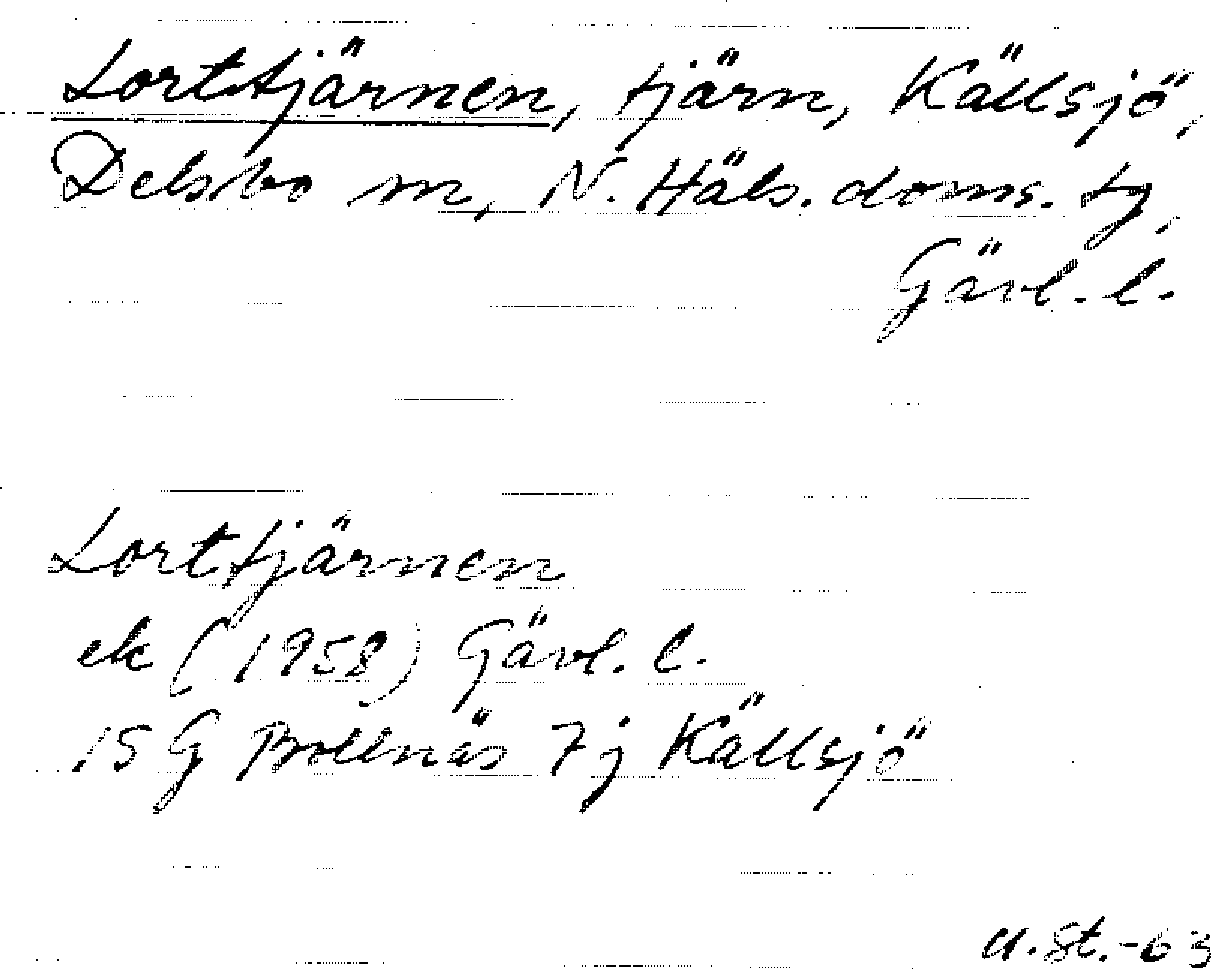 Lorttjärnen, tjärn, Källsjö,
Delsbo sn, N. Häls. doms. tg,
Gävl. l.
Lorttjärnen
ek (1958) Gävl. l.
15 G Bollnäs 7 j Källsjö
U. St. -63